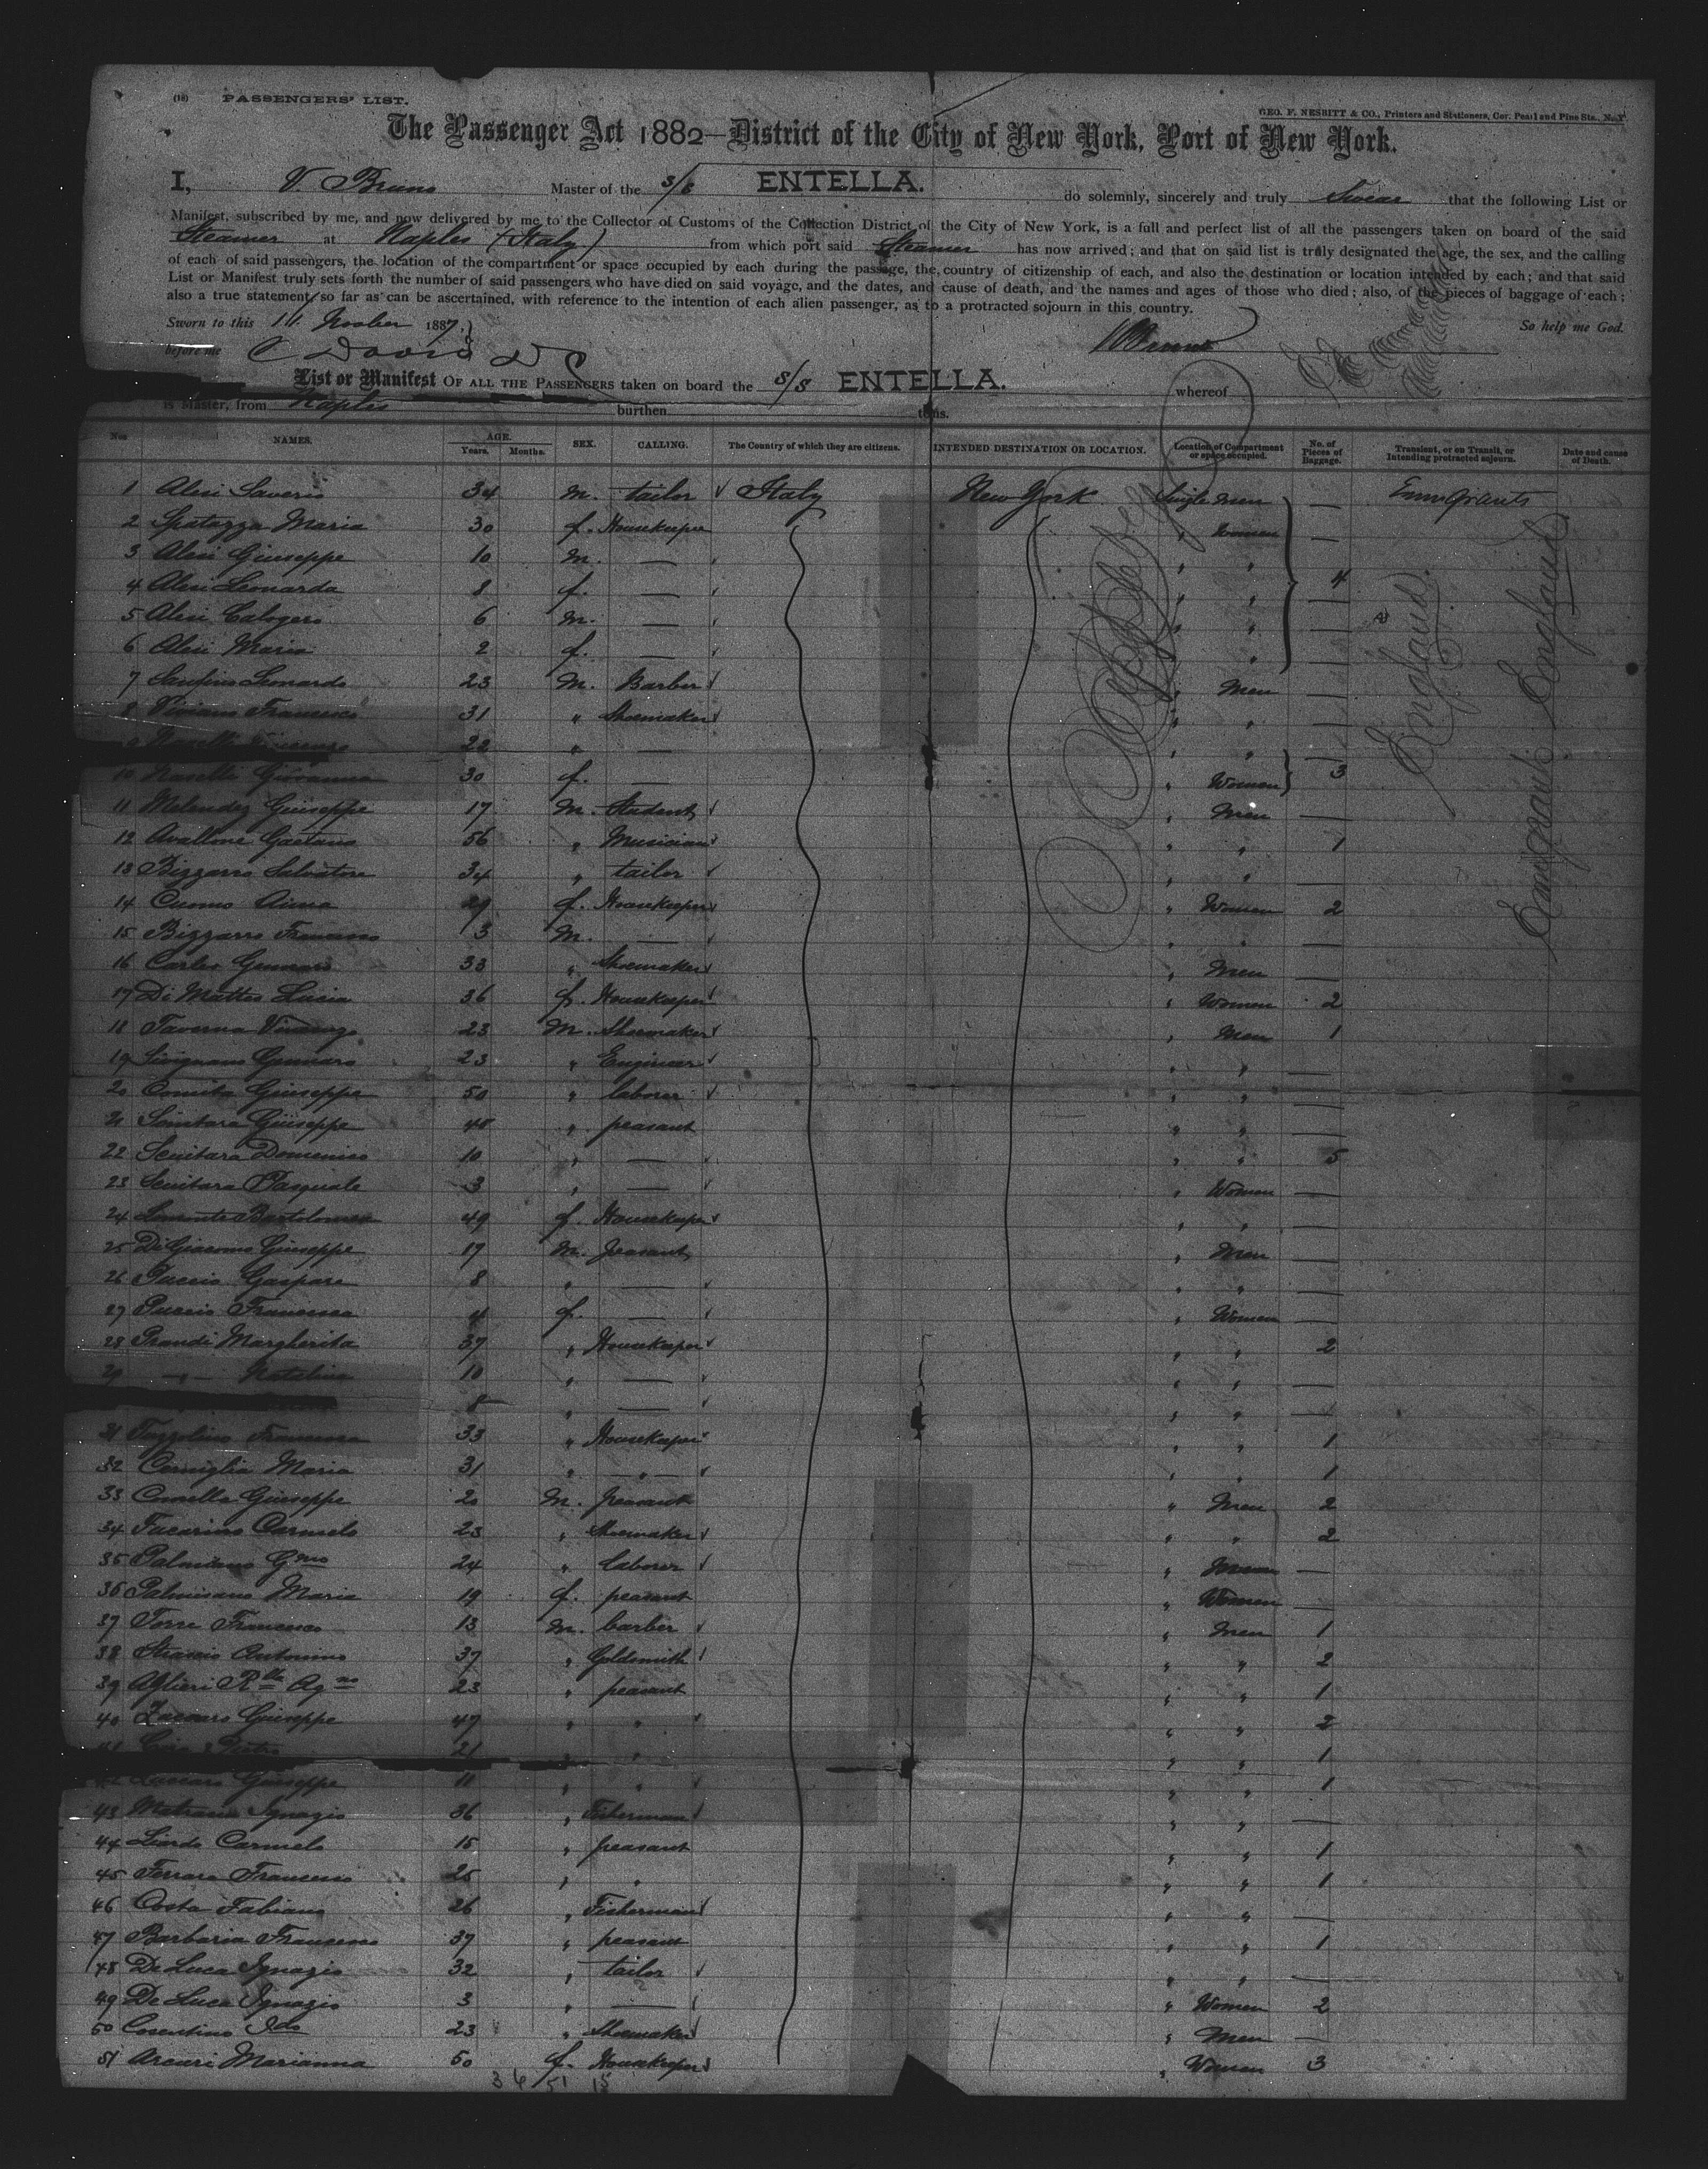 (18) PASSENGERS' LIST.
GEO. F. NESBITT & CO., Printers and Stationers, Cor. Pearl and Pine Sts., N. Y.
The Passenger Act 1882—District of the City of New York, Port of New York.
I, V. Bruno Master of the S/S ENTELLA. do solemnly, sincerely and truly Swear that the following List or
Manifest, subscribed by me, and now delivered by me to the Collector of Customs of the Collection District of the City of New York, is a full and perfect list of all the passengers taken on board of the said
Steamer at Naples (Italy) from which port said Steamer has now arrived; and that on said list is truly designated the age, the sex, and the calling
of each of said passengers, the location of the compartment or space occupied by each during the passage, the country of citizenship of each, and also the destination or location intended by each; and that said
List or Manifest truly sets forth the number of said passengers who have died on said voyage, and the dates, and cause of death, and the names and ages of those who died; also, of the pieces of baggage of each;
also a true statement, so far as can be ascertained, with reference to the intention of each alien passenger, as to a protracted sojourn in this country.
Sworn to this 11 1887, So help me God.
before me VBruno
List or Manifest OF ALL THE PASSENGERS taken on board the S/S ENTELLA. whereof
is Master, from Naples burthen tons.
Nos. NAMES. AGE. Years. Months. SEX. CALLING. The Country of which they are citizens. INTENDED DESTINATION OR LOCATION. Location of Compartment or space occupied. No. of Pieces of Baggage. Transient, or en Transit, or Intending protracted sojourn. Date and cause of Death.
1 Alesi Saverio 34 m. tailor Italy New York Single Men — Emigrants
2 Spatazza Maria 30 f. Housekeeper " Women —
3 Alesi Giuseppe 10 m. — " "
4 Alesi Leonarda 8 f. — " " 4
5 Alesi Calogero 6 m. — " " —
6 Alesi Maria 2 f. — " " —
7 Leonardo 23 m. Barber " Men —
8 Viviano Francesco 31 " Shoemaker " " —
9 22 " — " " —
10 Naselli Giovanna 30 f. — " Women 3
11 Melendez Giuseppe 17 m. Student " Men —
12 Avallone Gaetano 56 " Musician " " 1
13 Bizzarro Salvatore 34 " tailor " " —
14 Cuomo Anna 29 f. Housekeeper " Women 2
15 Bizzarro Francesco 3 m. — " " —
16 Carleo Gennaro 33 " Shoemaker " Men —
17 Di Matteo Lucia 36 f. Housekeeper " Women 2
18 Taverna Vincenzo 23 m. Shoemaker " Men 1
19 Gennaro 23 " Engineer " " —
20 Comito Giuseppe 50 " laborer " " —
21 Giuseppe 45 " peasant " " —
22 Scuitara Domenico 10 " — " " 5
23 Scuitara Pasquale 3 " — " Women —
24 Bartolomea 49 f. Housekeeper " " —
25 Di Giacomo Giuseppe 17 m. peasant " Men —
26 Puccio Gaspare 8 " — " " —
27 Puccio Francesca 4 f. — " Women —
28 Prandi Margherita 37 " Housekeeper " " 2
29 —"— Natalina 10 " — " " —
8 " — " " —
31 Tuzzolino Francesca 33 " Housekeeper " " 1
32 Corniglia Maria 31 " —"— " " 1
33 Giuseppe 20 m. peasant " Men 2
34 Carmelo 23 " Shoemaker " " 2
35 Palmisano Gmo 24 " laborer " —
36 Palmisano Maria 19 f. peasant " Women —
37 Torre Francesco 13 m. barber " Men 1
38 Antonino 37 " Goldsmith " " 2
39 Aglieri Rlla Agno 23 " peasant " " 1
40 Giuseppe 47 " " " " 2
41 Pietro 21 " " " " 1
42 Giuseppe 11 " " " " 1
43 Matranga Ignazio 36 " Fisherman " " —
44 Carmelo 15 " peasant " " 1
45 Ferrara Francesco 25 " " " " 1
46 Costa Fabiano 26 " Fisherman " " —
47 Barbaria Francesco 37 " peasant " " 1
48 De Luca Ignazio 32 " tailor " " —
49 De Luca Ignazio 3 " — " Women 2
50 Cosentino Ido 23 " Shoemaker " Men —
51 Arcuri Marianna 50 f. Housekeeper " Women 3
36 / 51 15
England
Emigrant England